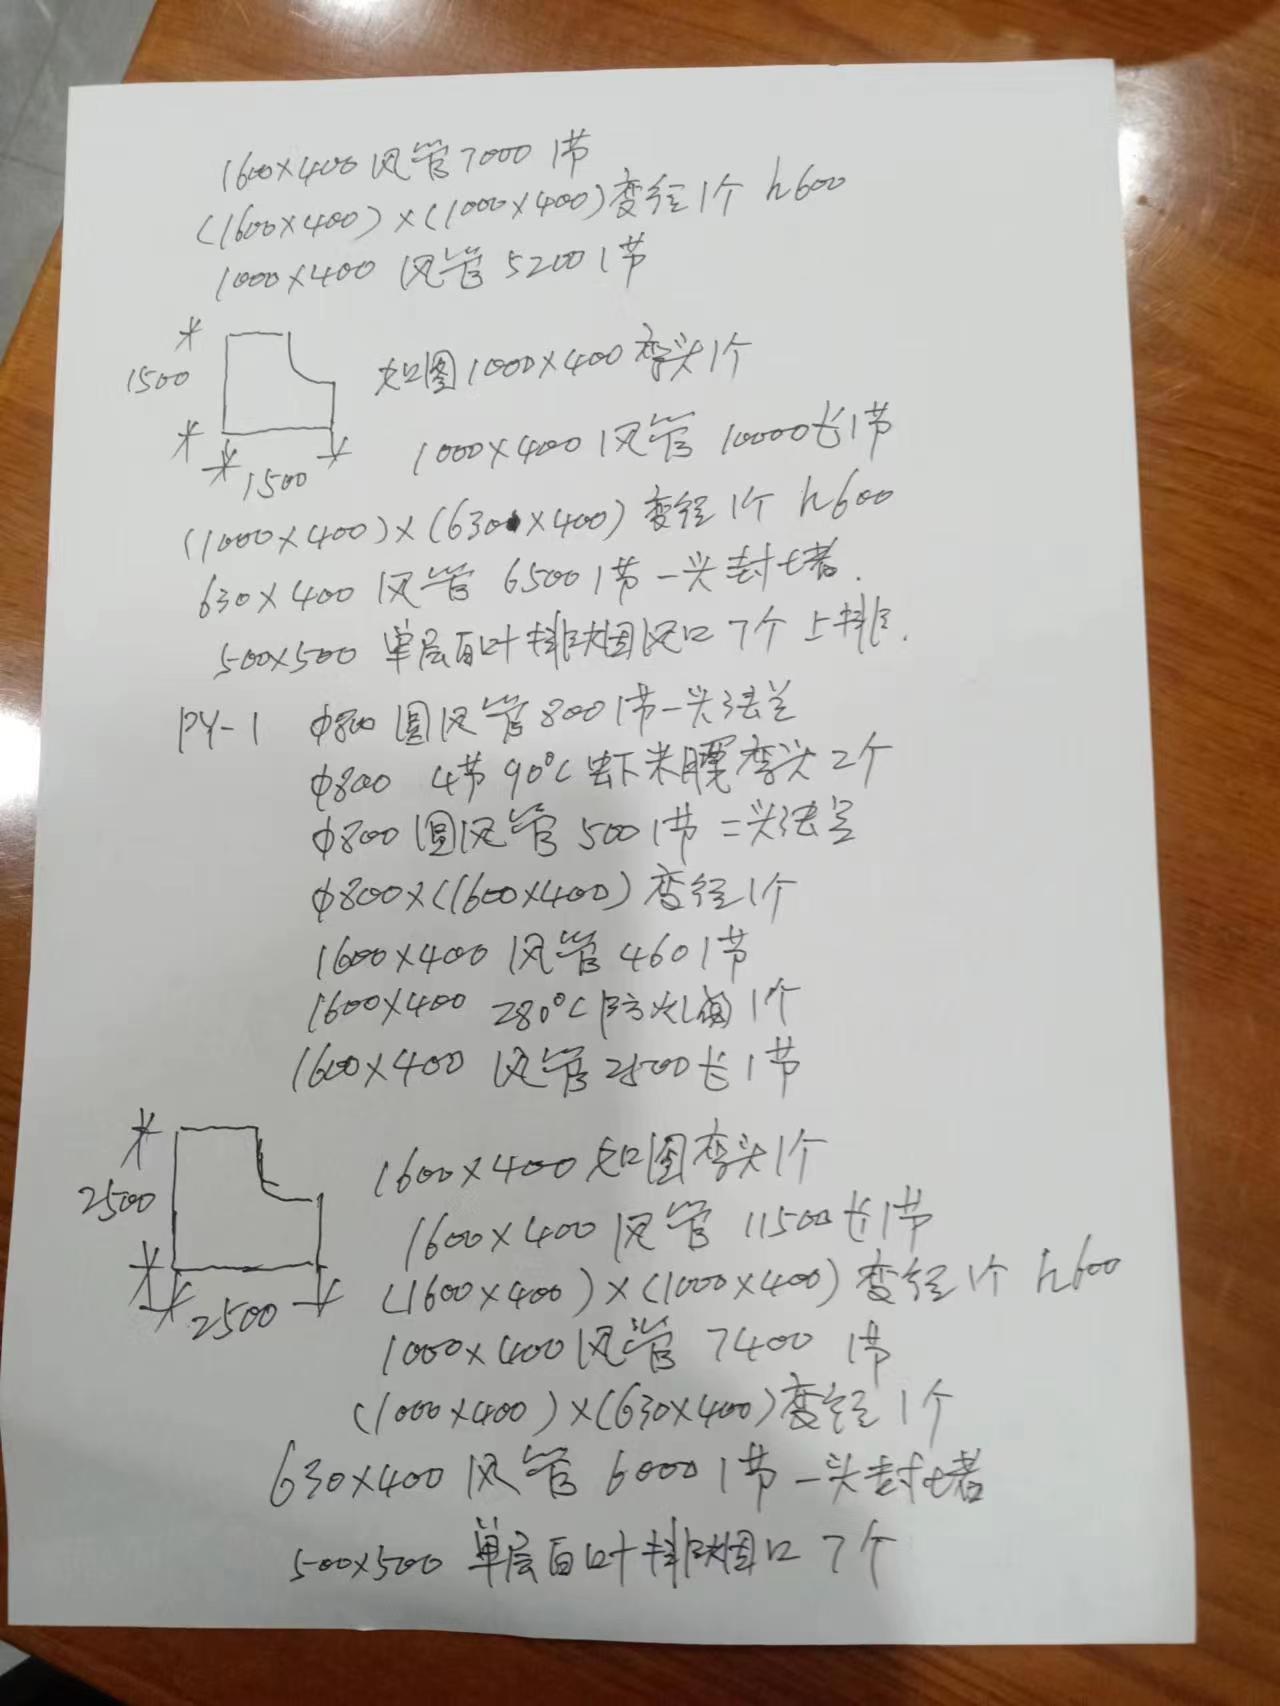 1600×400 风管 7000 1节
(1600×400)×(1000×400)变径1个 h600
1000×400 风管 5200 1节
1500
1500
如图1000×400弯头1个
1000×400 风管 10000长1节
(1000×400)×(630×400)变径1个 h600
630×400 风管 6500 1节一头封堵.
500×500 单层百叶排烟风口 7个 上排.
PY-1 φ800 圆风管 800 1节一头法兰
φ800 4节90℃虾米腰弯头2个
φ800圆风管 500 1节二头法兰
φ800×(1600×400)变径1个
1600×400 风管 460 1节
1600×400 280℃防火阀1个
1600×400 风管 2500长1节
2500
2500
1600×400如图弯头1个
1600×400风管 11500长1节
(1600×400)×(1000×400)变径1个 h600
1000×400风管 7400 1节
(1000×400)×(630×400)变径1个
630×400 风管 6000 1节一头封堵
500×500 单层百叶排烟口 7个